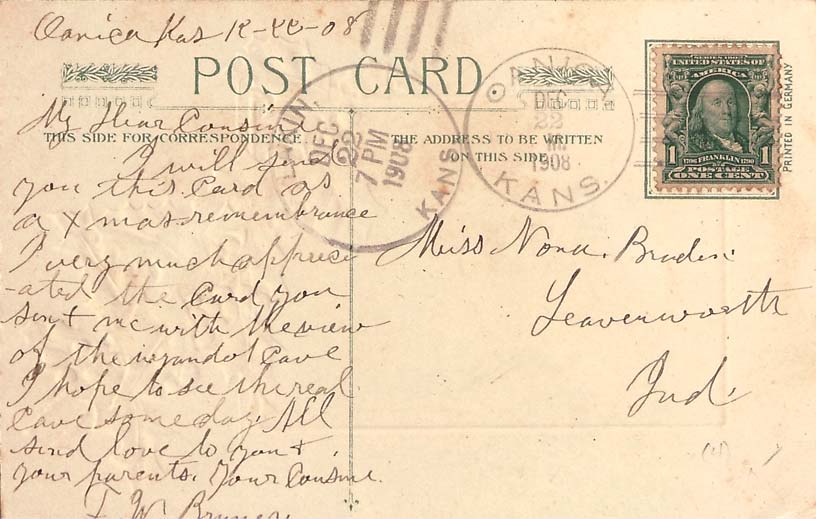 Oanica Kas 12-22-08
POST CARD
THIS SIDE FOR CORRESPONDENCE
THE ADDRESS TO BE WRITTEN
ON THIS SIDE
My Dear Cousine
I will send
you this Card as
a X mas remembrance
I very much apprec
-ated the Card you
sent me with the view
of the wyandot Cave
I hope to see the real
Cave some day. All
send love to you &
your parents. Your Cousine.
F W Bruner
LAKIN,
DEC
22
7 PM
1908
KANS
OANICA
DEC
22
1908
KANS.
SERIES 1902
UNITED STATES OF
AMERICA
1706 FRANKLIN 1790
POSTAGE
1 ONE CENT 1
PRINTED IN GERMANY
Miss Nona. Bruden.
Leavenworth
Ind.